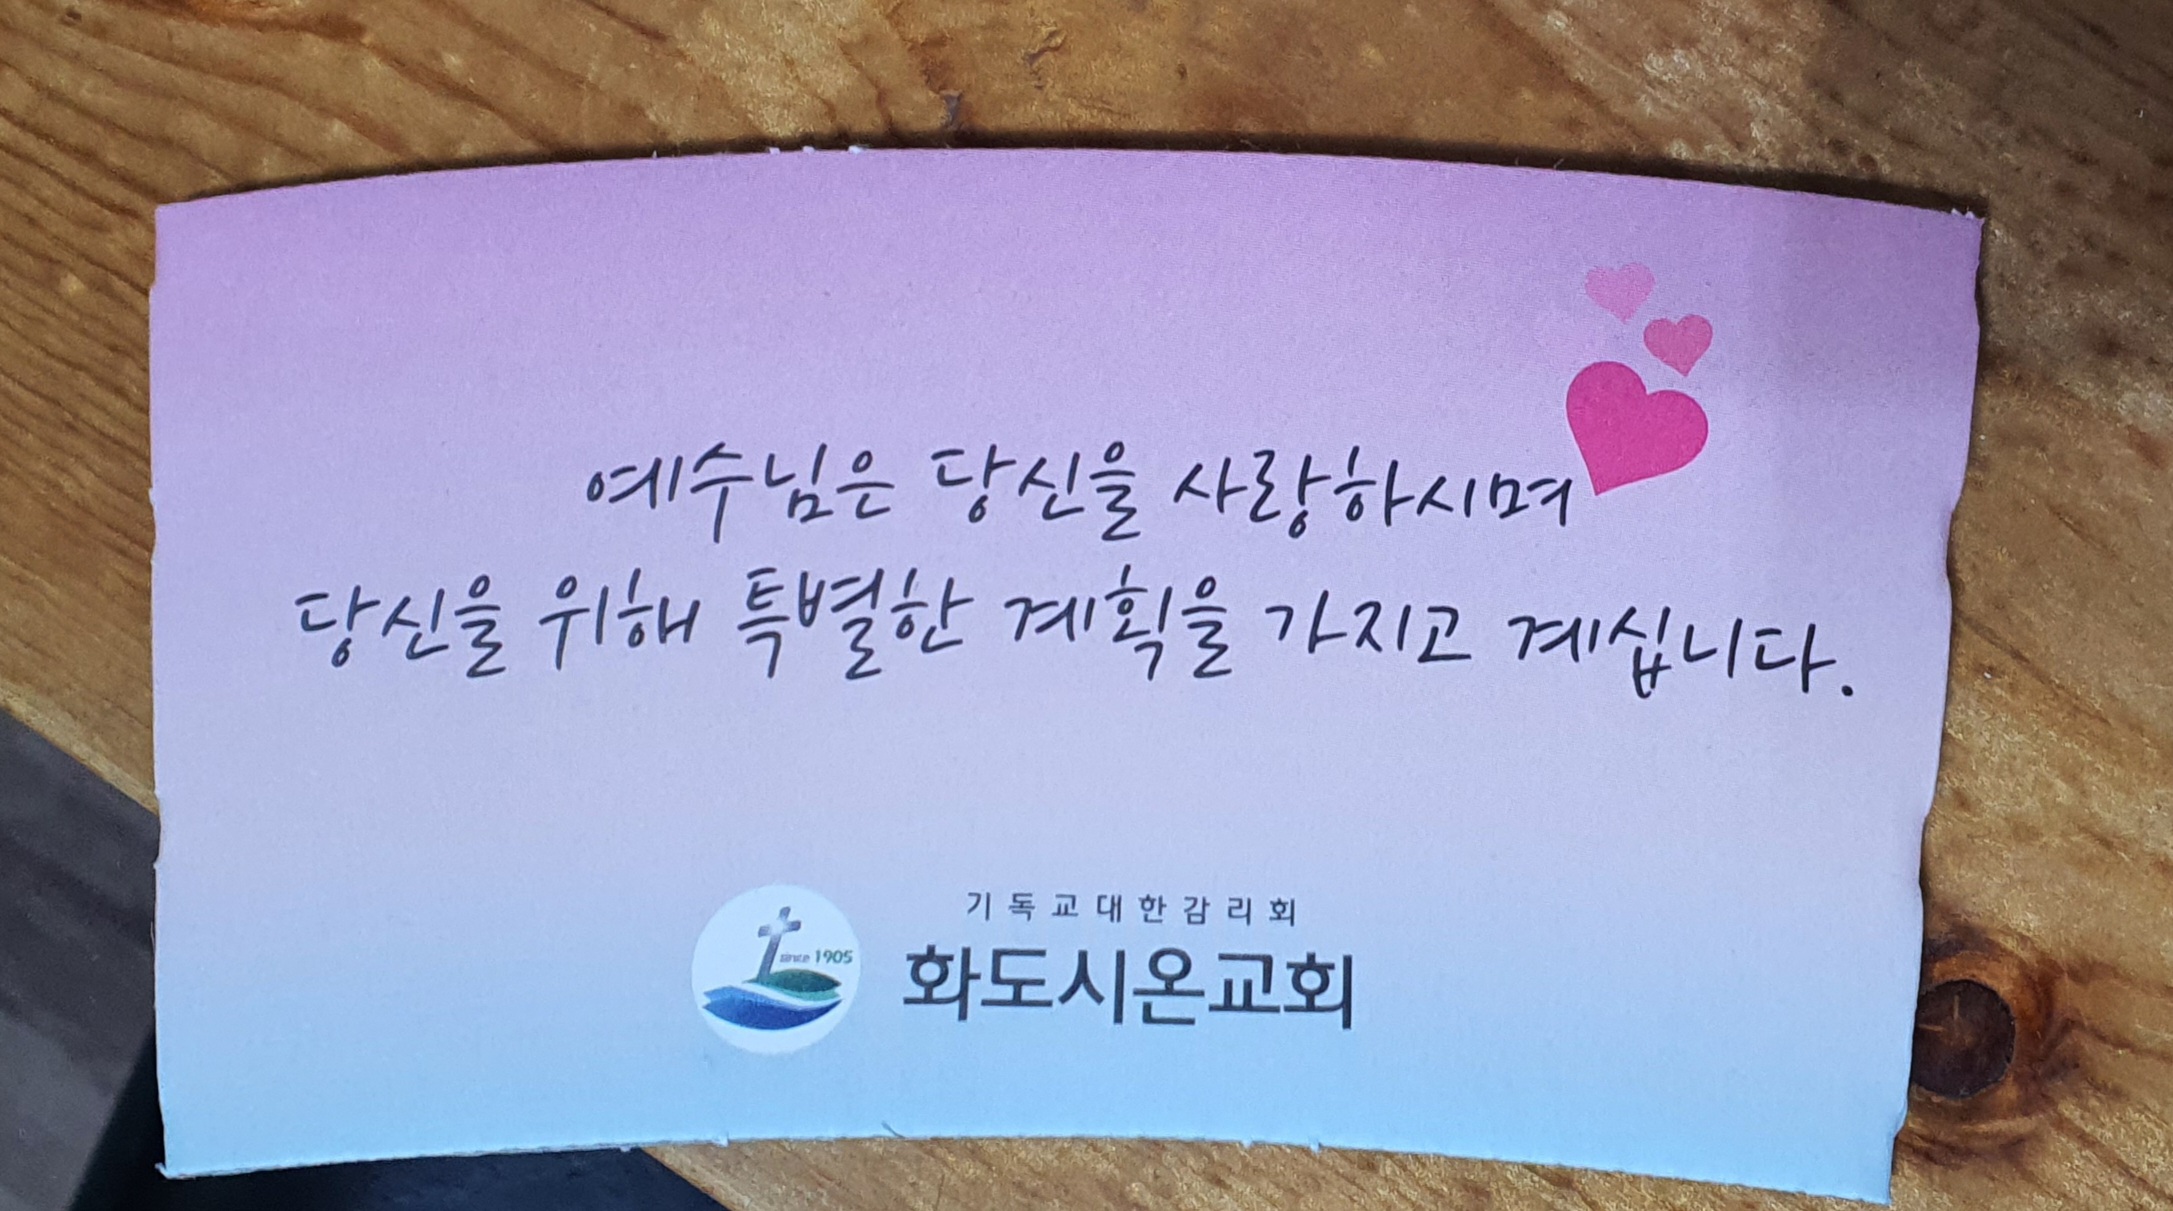 예수님은 당신을 사랑하시며
당신을 위해 특별한 계획을 가지고 계십니다.
since 1905
기독교대한감리회
화도시온교회